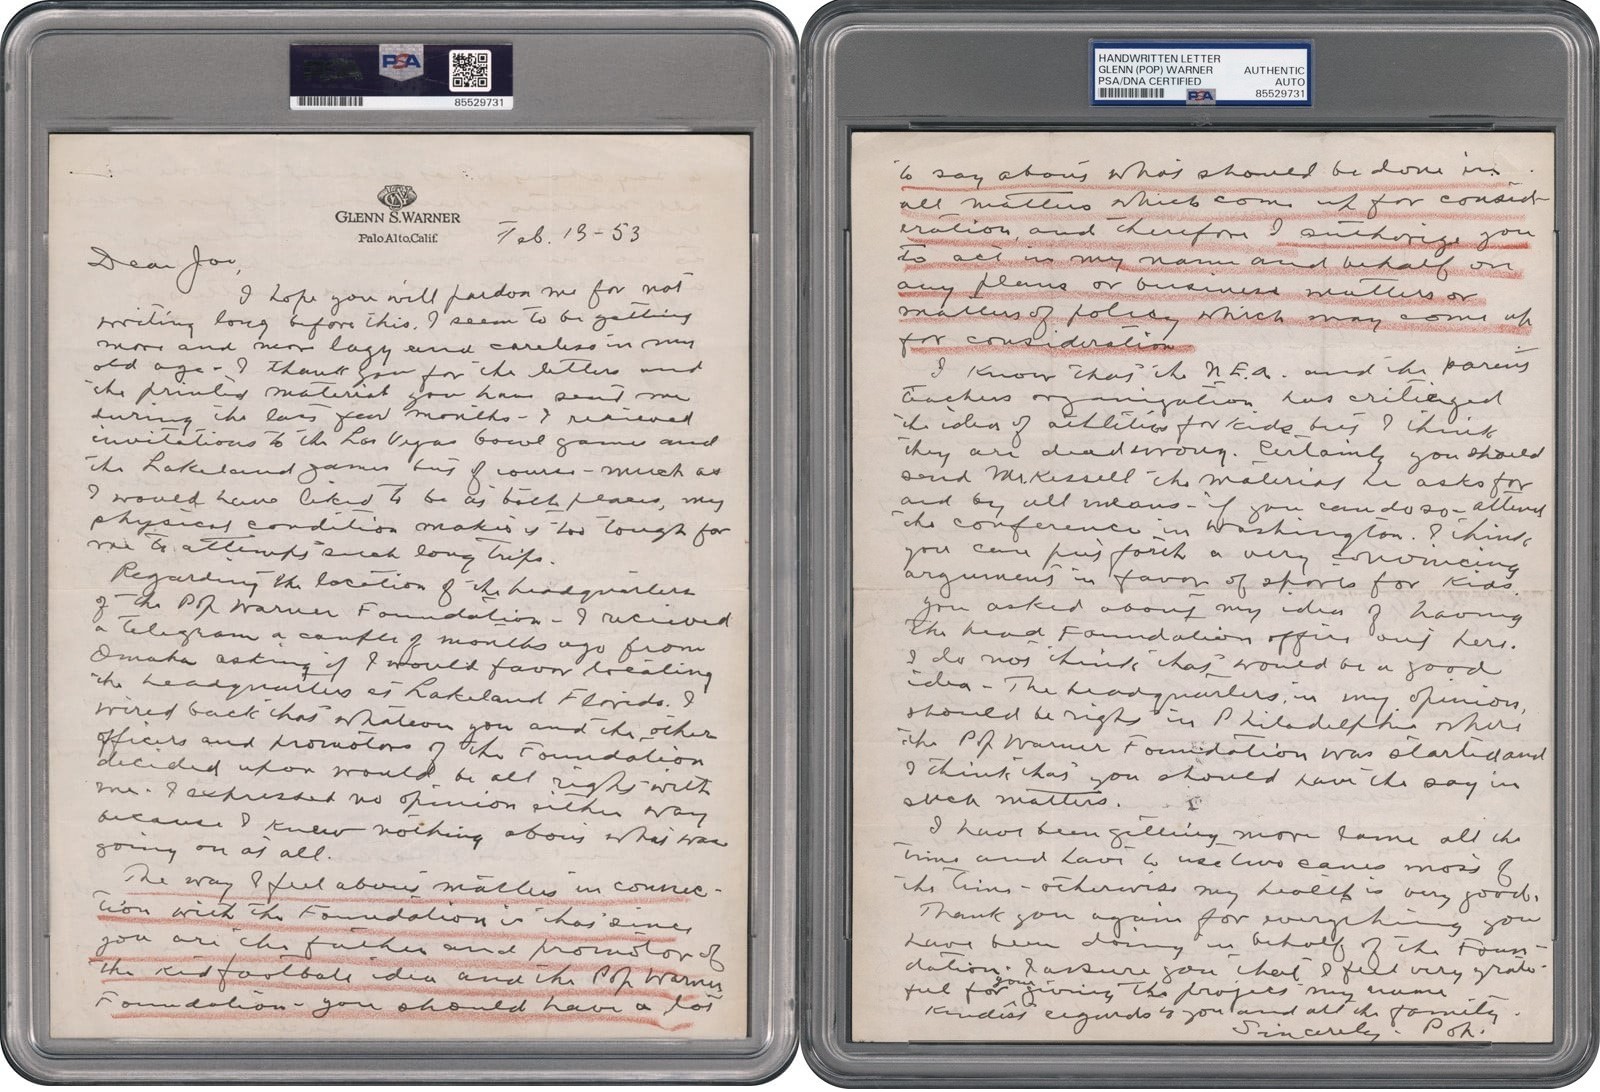 PSA
85529731
GLENN S. WARNER
Palo Alto, Calif.
Feb. 13-53
Dear Joe,
I hope you will pardon me for not
writing long before this. I seem to be getting
more and more lazy and careless in my
old age - I thank you for the letters and
the printed material you have sent me
during the last few months - I received
invitations to the Las Vegas bowl game and
the Lakeland games but of course - much as
I would have liked to be at both places, my
physical condition makes it too tough for
me to attempt such long trips.
Regarding the location of the headquarters
of the Pop Warner Foundation - I received
a telegram a couple of months ago from
Omaha asking if I would favor locating
the headquarters at Lakeland Florida. I
wired back that whatever you and the other
officers and promotors of the Foundation
decided upon would be all right with
me. I expressed no opinion either way
because I knew nothing about what was
going on at all.
The way I feel about matters in connec-
tion with the Foundation is that since
you are the father and promotor of
the kid football idea and the Pop Warner
Foundation - you should have a lot
HANDWRITTEN LETTER
GLENN (POP) WARNER AUTHENTIC
PSA/DNA CERTIFIED AUTO
85529731
PSA
to say about what should be done in
all matters which come up for consid-
eration, and therefore I authorize you
to act in my name and behalf on
any plans or business matters or
matters of policy which may come up
for consideration
I know that the N.E.A. and the parent
teachers organization has critiezed
the idea of athletics for kids but I think
they are dead wrong. Certainly you should
send Mr. Kissell the material he asks for
and by all means - if you can do so - attend
the conference in Washington. I think
you can put forth a very convincing
argument in favor of sports for kids.
You asked about my idea of having
the head Foundation office out here.
I do not think that would be a good
idea - The headquarters, in my opinion,
should be right in Philadelphia where
the Pop Warner Foundation was started and
I think that you should have the say in
such matters.
I have been getting more lame all the
time and have to use two canes most of
the time - otherwise my health is very good.
Thank you again for everything you
have been doing in behalf of the Foun-
dation. I assure you that I feel very grate-
ful for your giving the project my name
Kindest regards to you and all the family.
Sincerely - Pop.